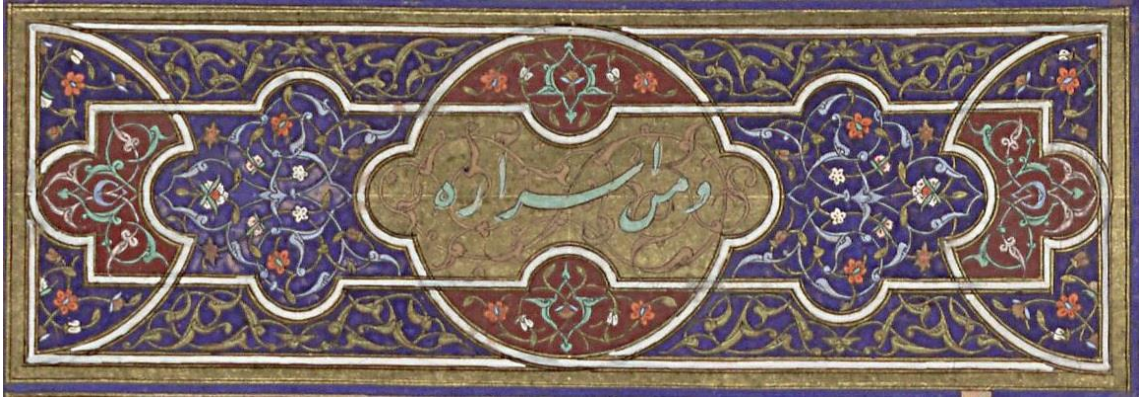 ومن اسراره